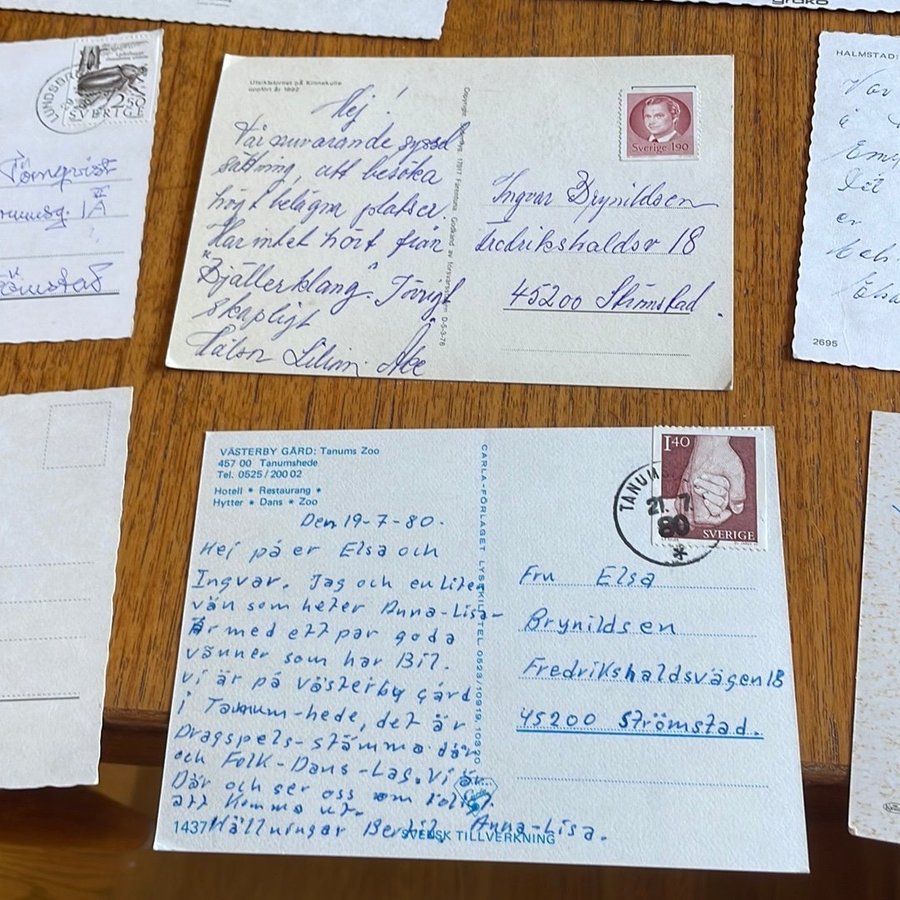 grako
2.50
SVERIGE
Törnqvist
Utsiktstornet på Kinnekulle
uppfört år 1892
Hej!
Vår nuvarande syssel
sättning, att besöka
högt belägna platser.
Har intet hört från
"Bjällerklang". Övrigt
skapligt
Hälsn Lilian. Åke
Sverige 1.90
Ingvar Brynildsen
Fredrikshaldsv 18
45200 Strömstad.
HALMSTAD:
2695
VÄSTERBY GÅRD: Tanums Zoo
457 00 Tanumshede
Tel. 0525/200 02
Hotell * Restaurang *
Hytter * Dans * Zoo
Den 19-7-80.
Hej på er Elsa och
Ingvar. Jag och en liten
vän som heter Anna-Lisa-
Är med ett par goda
vänner som har Bil.
vi är på västerby gård
i Tanum-hede, det är
Dragspels-stämma där
och Folk-Dans-Lag. vi är
Där och ser oss om
att komma ut.
Hällningar Bertil, Anna-Lisa.
1437
SVENSK TILLVERKNING
CARLA-FÖRLAGET LYSEKIL TEL. 0523/10919, 10320
1.40
SVERIGE
TANUM
21. 7.
80
Fru Elsa
Brynildsen
Fredrikshaldsvägen 18
45200 Strömstad.